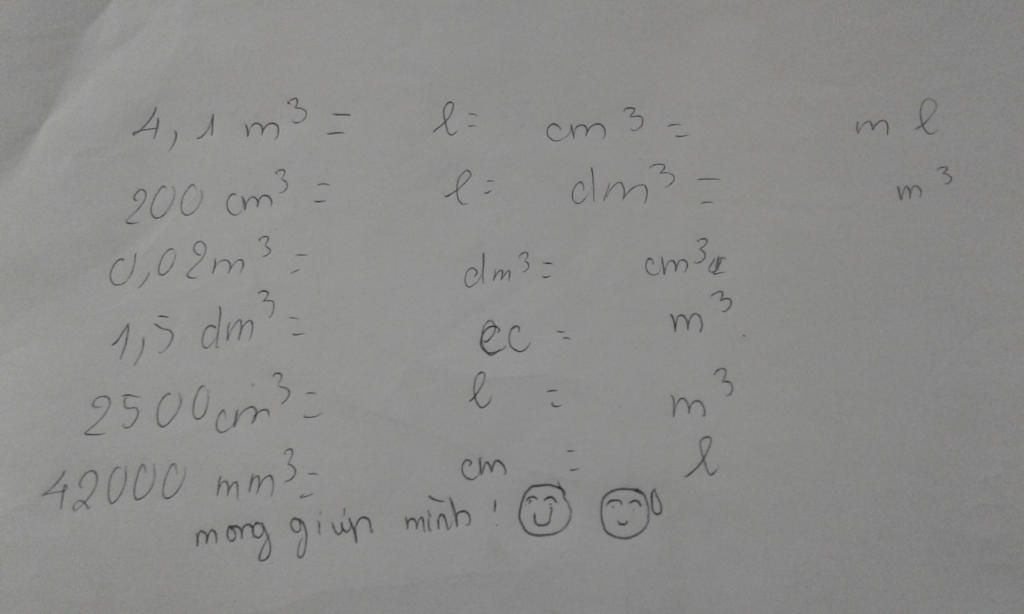 4,1 m³ = l = cm³ = ml
200 cm³ = l = dm³ = m³
0,02m³ = dm³ = cm³
1,5 dm³ = cc = m³
2500cm³ = l = m³
42000 mm³ = cm = l
mong giúp mình!